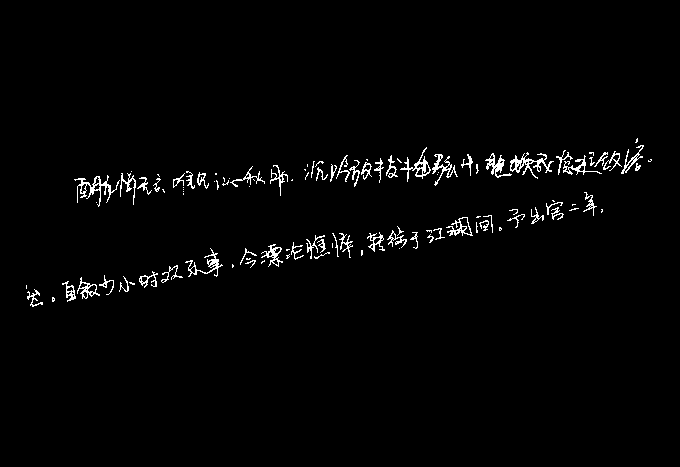 悄无言,唯见江心秋月。沉吟放拨插弦中,整顿衣裳起敛容。
然。自叙少小时欢乐事,今漂沦憔悴,转徙于江湖间。予出官二年,